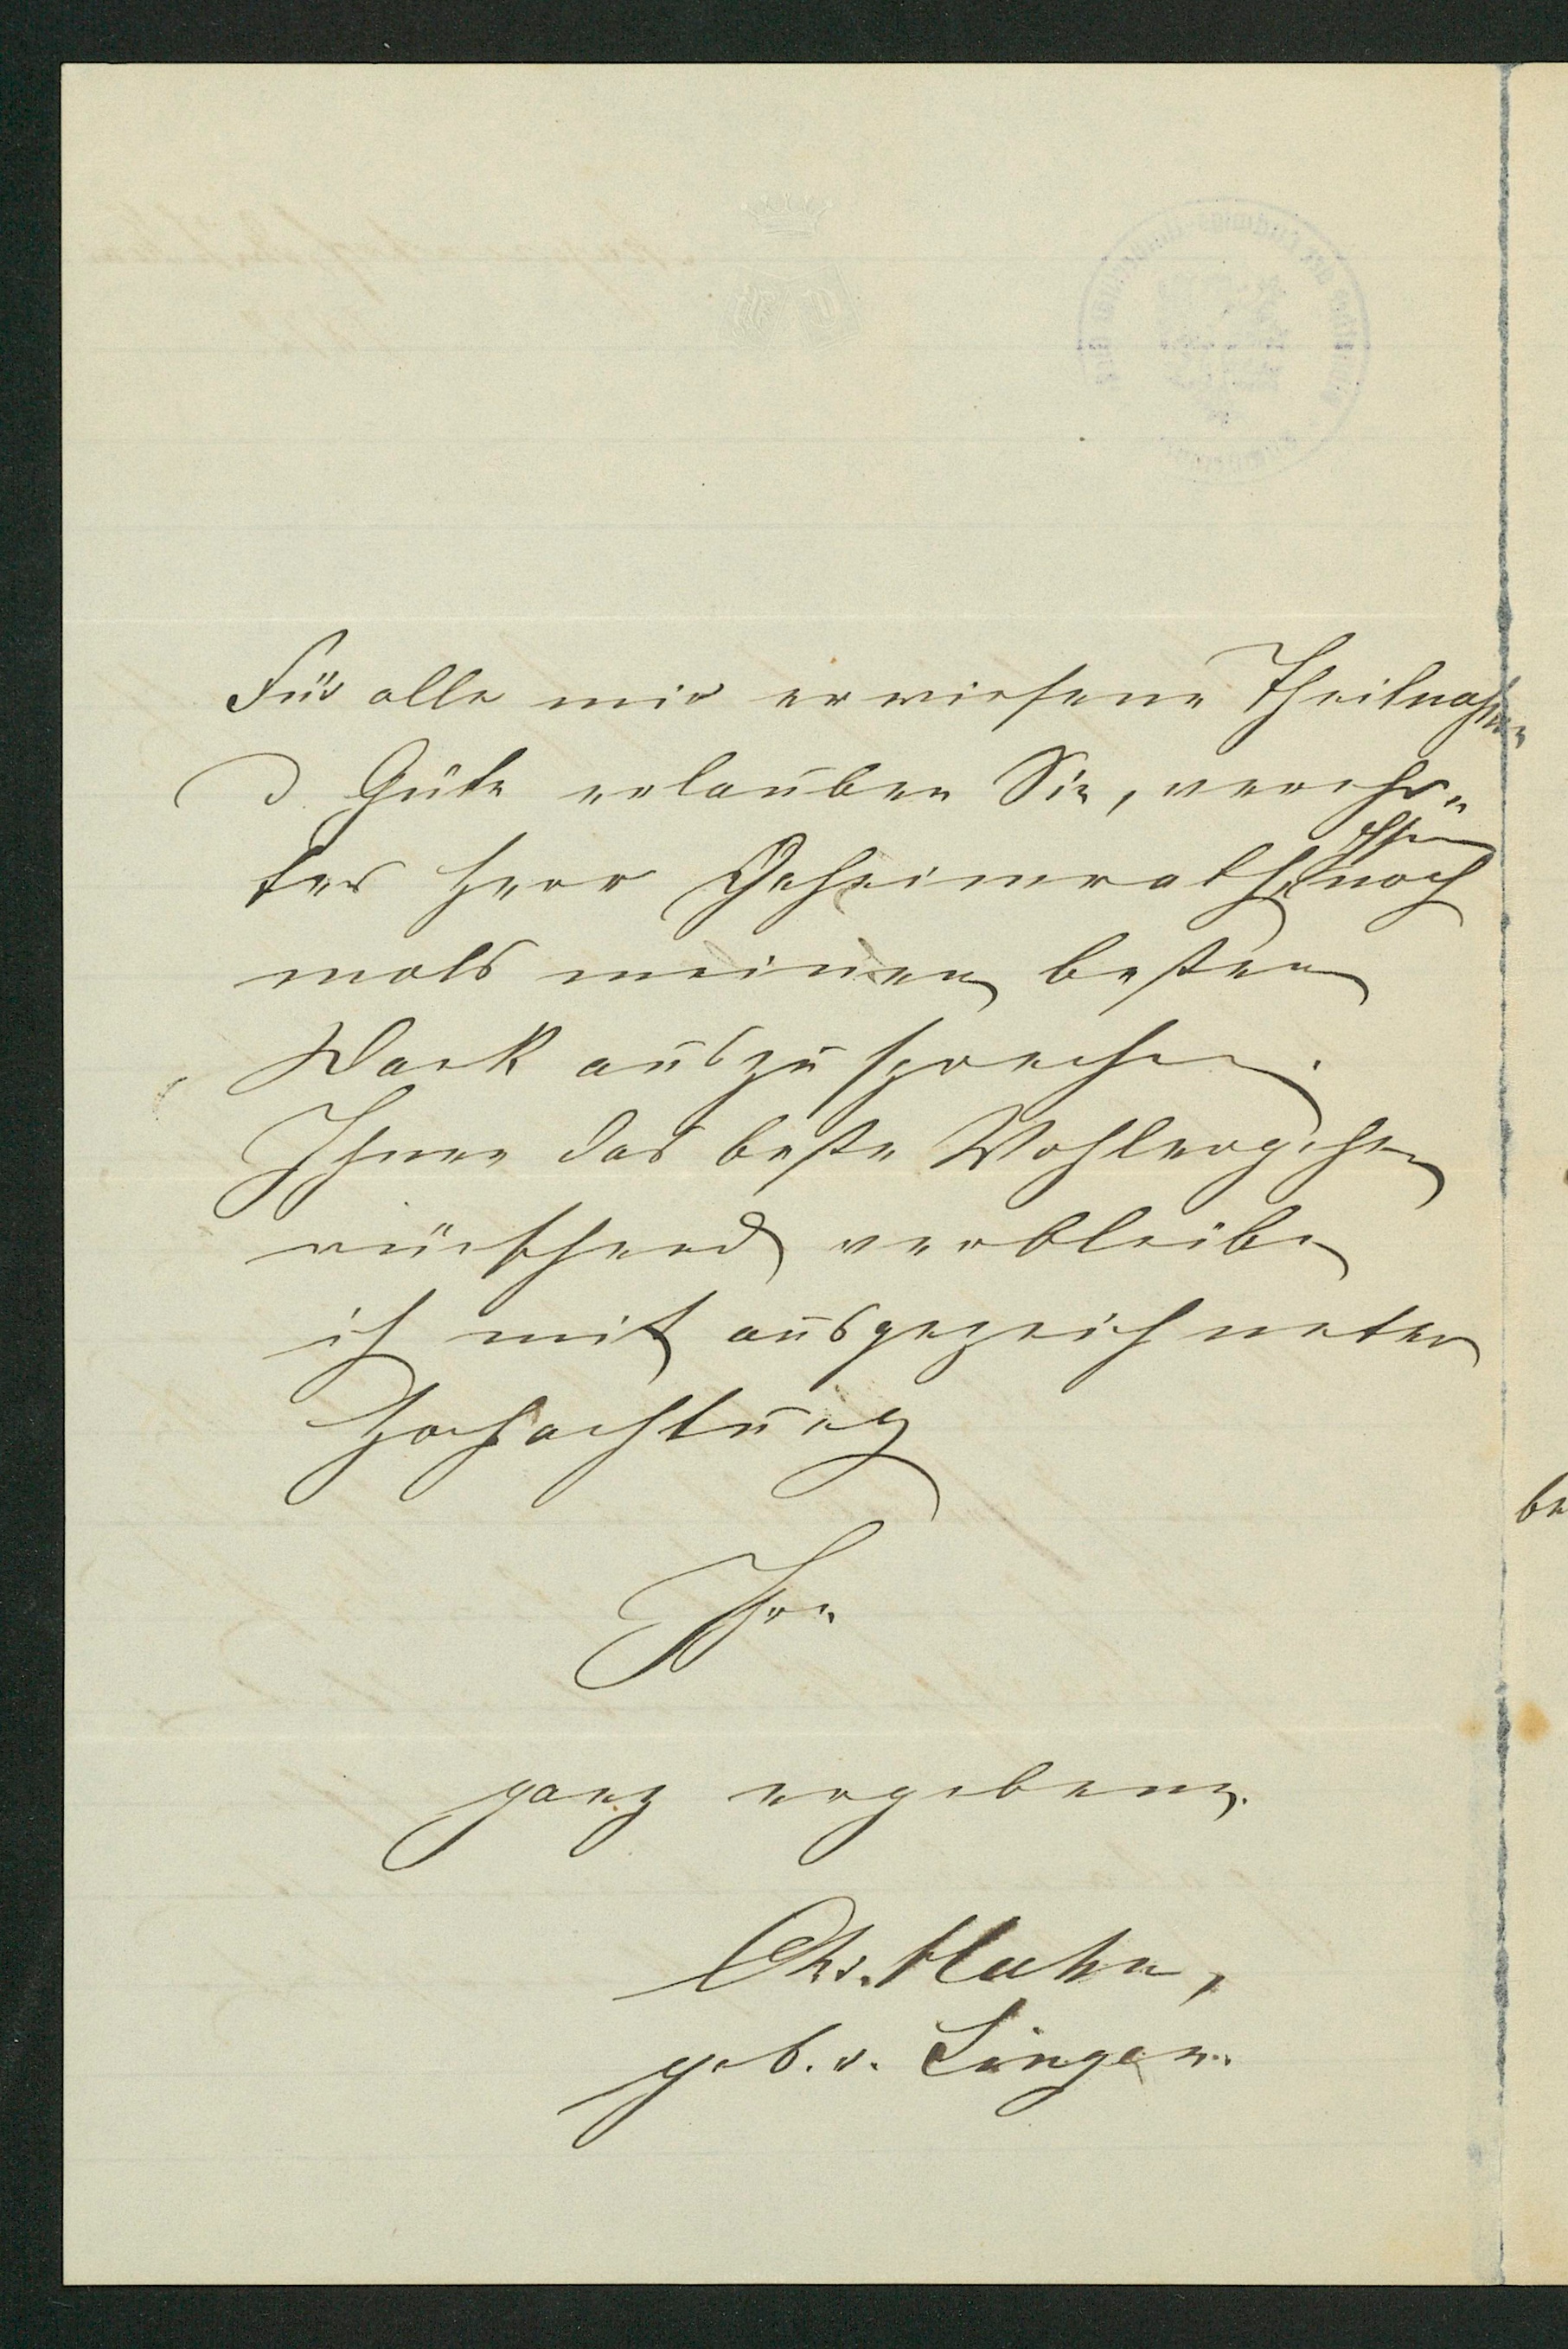 Für alle mir erwiesene Theilnahme
u. Güte erlauben Sie, verehr-
ter Herr Geheimrath, noch
mals meinen besten
Dank auszusprechen.
Ihnen das beste Wohlergehen
wünschend verbleibe
ich mit ausgezeichneter
Hochachtung
Ihre
ganz ergebene
Chr. Hahn,
geb. v. Lingen.
be